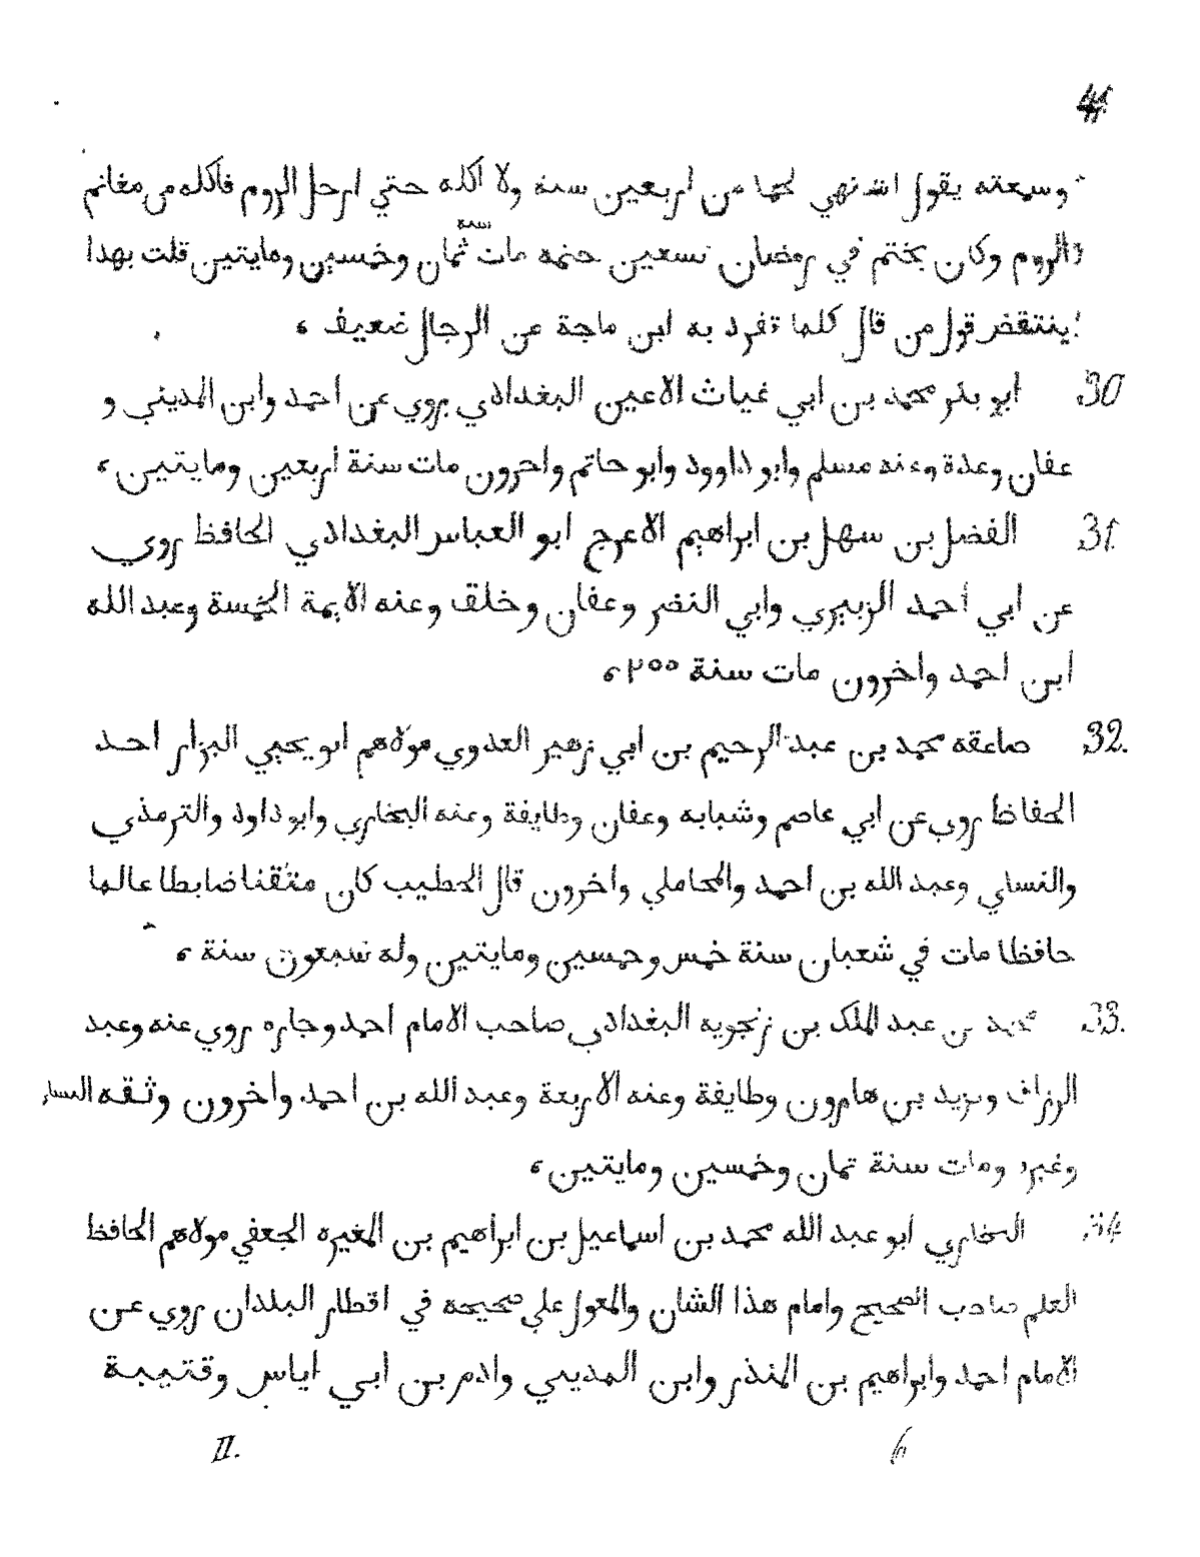 41.
وسمعته يقول اشتهي لحما من اربعين سنة ولا اكله حتي ادخل الروم فاكله من مغانم
الروم وكان يختم في رمضان تسعين ختمه مات سنة ثمان وخمسين ومايتين قلت بهذا
ينتقض قول من قال كلما تفرد به ابن ماجة عن الرجال ضعيف ،
30 ابو بكر محمد بن ابي غياث الاعين البغدادي يروي عن احمد وابن المديني و
عفان وعدة وعنه مسلم وابو داوود وابو حاتم واخرون مات سنة اربعين ومايتين ،
31. الفضل بن سهل بن ابراهيم الاعرج ابو العباس البغدادي الحافظ روي
عن ابي احمد الزبيري وابي النضر وعفان وخلق وعنه الايمة الخمسة وعبد الله
ابن احمد واخرون مات سنة ٢٥٥ ،
32. صاعقه محمد بن عبد الرحيم بن ابي زهير العدوي مولاهم ابو يحيي البزار احد
الحفاظ روي عن ابي عاصم وشبابه وعفان وطايفة وعنه البخاري وابو داود والترمذي
والنساي وعبد الله بن احمد والمحاملي واخرون قال الخطيب كان متقنا ضابطا عالما
حافظا مات في شعبان سنة خمس وخمسين ومايتين وله سبعون سنة ،
33. محمد بن عبد الملك بن زنجويه البغدادي صاحب الامام احمد وجاره روي عنه وعبد
الرزاق ويزيد بن هارون وطايفة وعنه الاربعة وعبد الله بن احمد واخرون وثقه النساي
وغيره ومات سنة ثمان وخمسين ومايتين ،
34 البخاري ابو عبد الله محمد بن اسماعيل بن ابراهيم بن المغيره الجعفي مولاهم الحافظ
العلم صاحب الصحيح وامام هذا الشان والمعول علي صحيحه في اقطار البلدان روي عن
الامام احمد وابراهيم بن المنذر وابن المديني وادم بن ابي اياس وقتيبة
II. 6